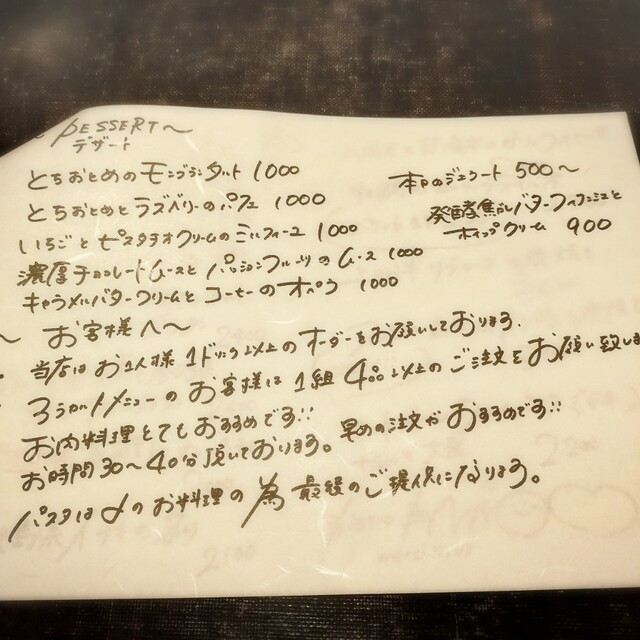 ~ DESSERT ~
デザート
とちおとめのモンブランタルト 1000
とちおとめとラズベリーのパフェ 1000
いちごとピスタチオクリームのミルフィーユ 1000
濃厚チョコレートムースとパッションフルーツのムース 1000
キャラメルバタークリームとコーヒーのオペラ 1000
本日のジェラート 500~
発酵焦がしバターフィナンシェと
ホイップクリーム 900
~ お客様へ~
当店はお1人様1ドリンク以上のオーダーをお願いしております.
アラカルトメニューのお客様は1組4品以上のご注文をお願い致しま
お肉料理とてもおすすめです!!
お時間30~40分頂いております。早めの注文がおすすめです!!
パスタは〆のお料理の為最後のご提供になります。